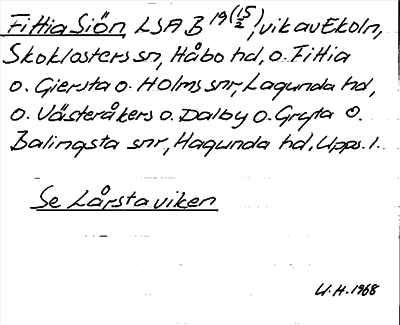 Fittia Siön, LSA B 19 (15/2), vik av Ekoln,
Skoklosters sn, Håbo hd, o. Fittia
o. Giersta o. Holms snr, Lagunda hd,
o. Västeråkers o. Dalby o. Gryta o.
Balingsta snr, Hagunda hd, Upps. l.
Se Lårstaviken
U.H. 1968